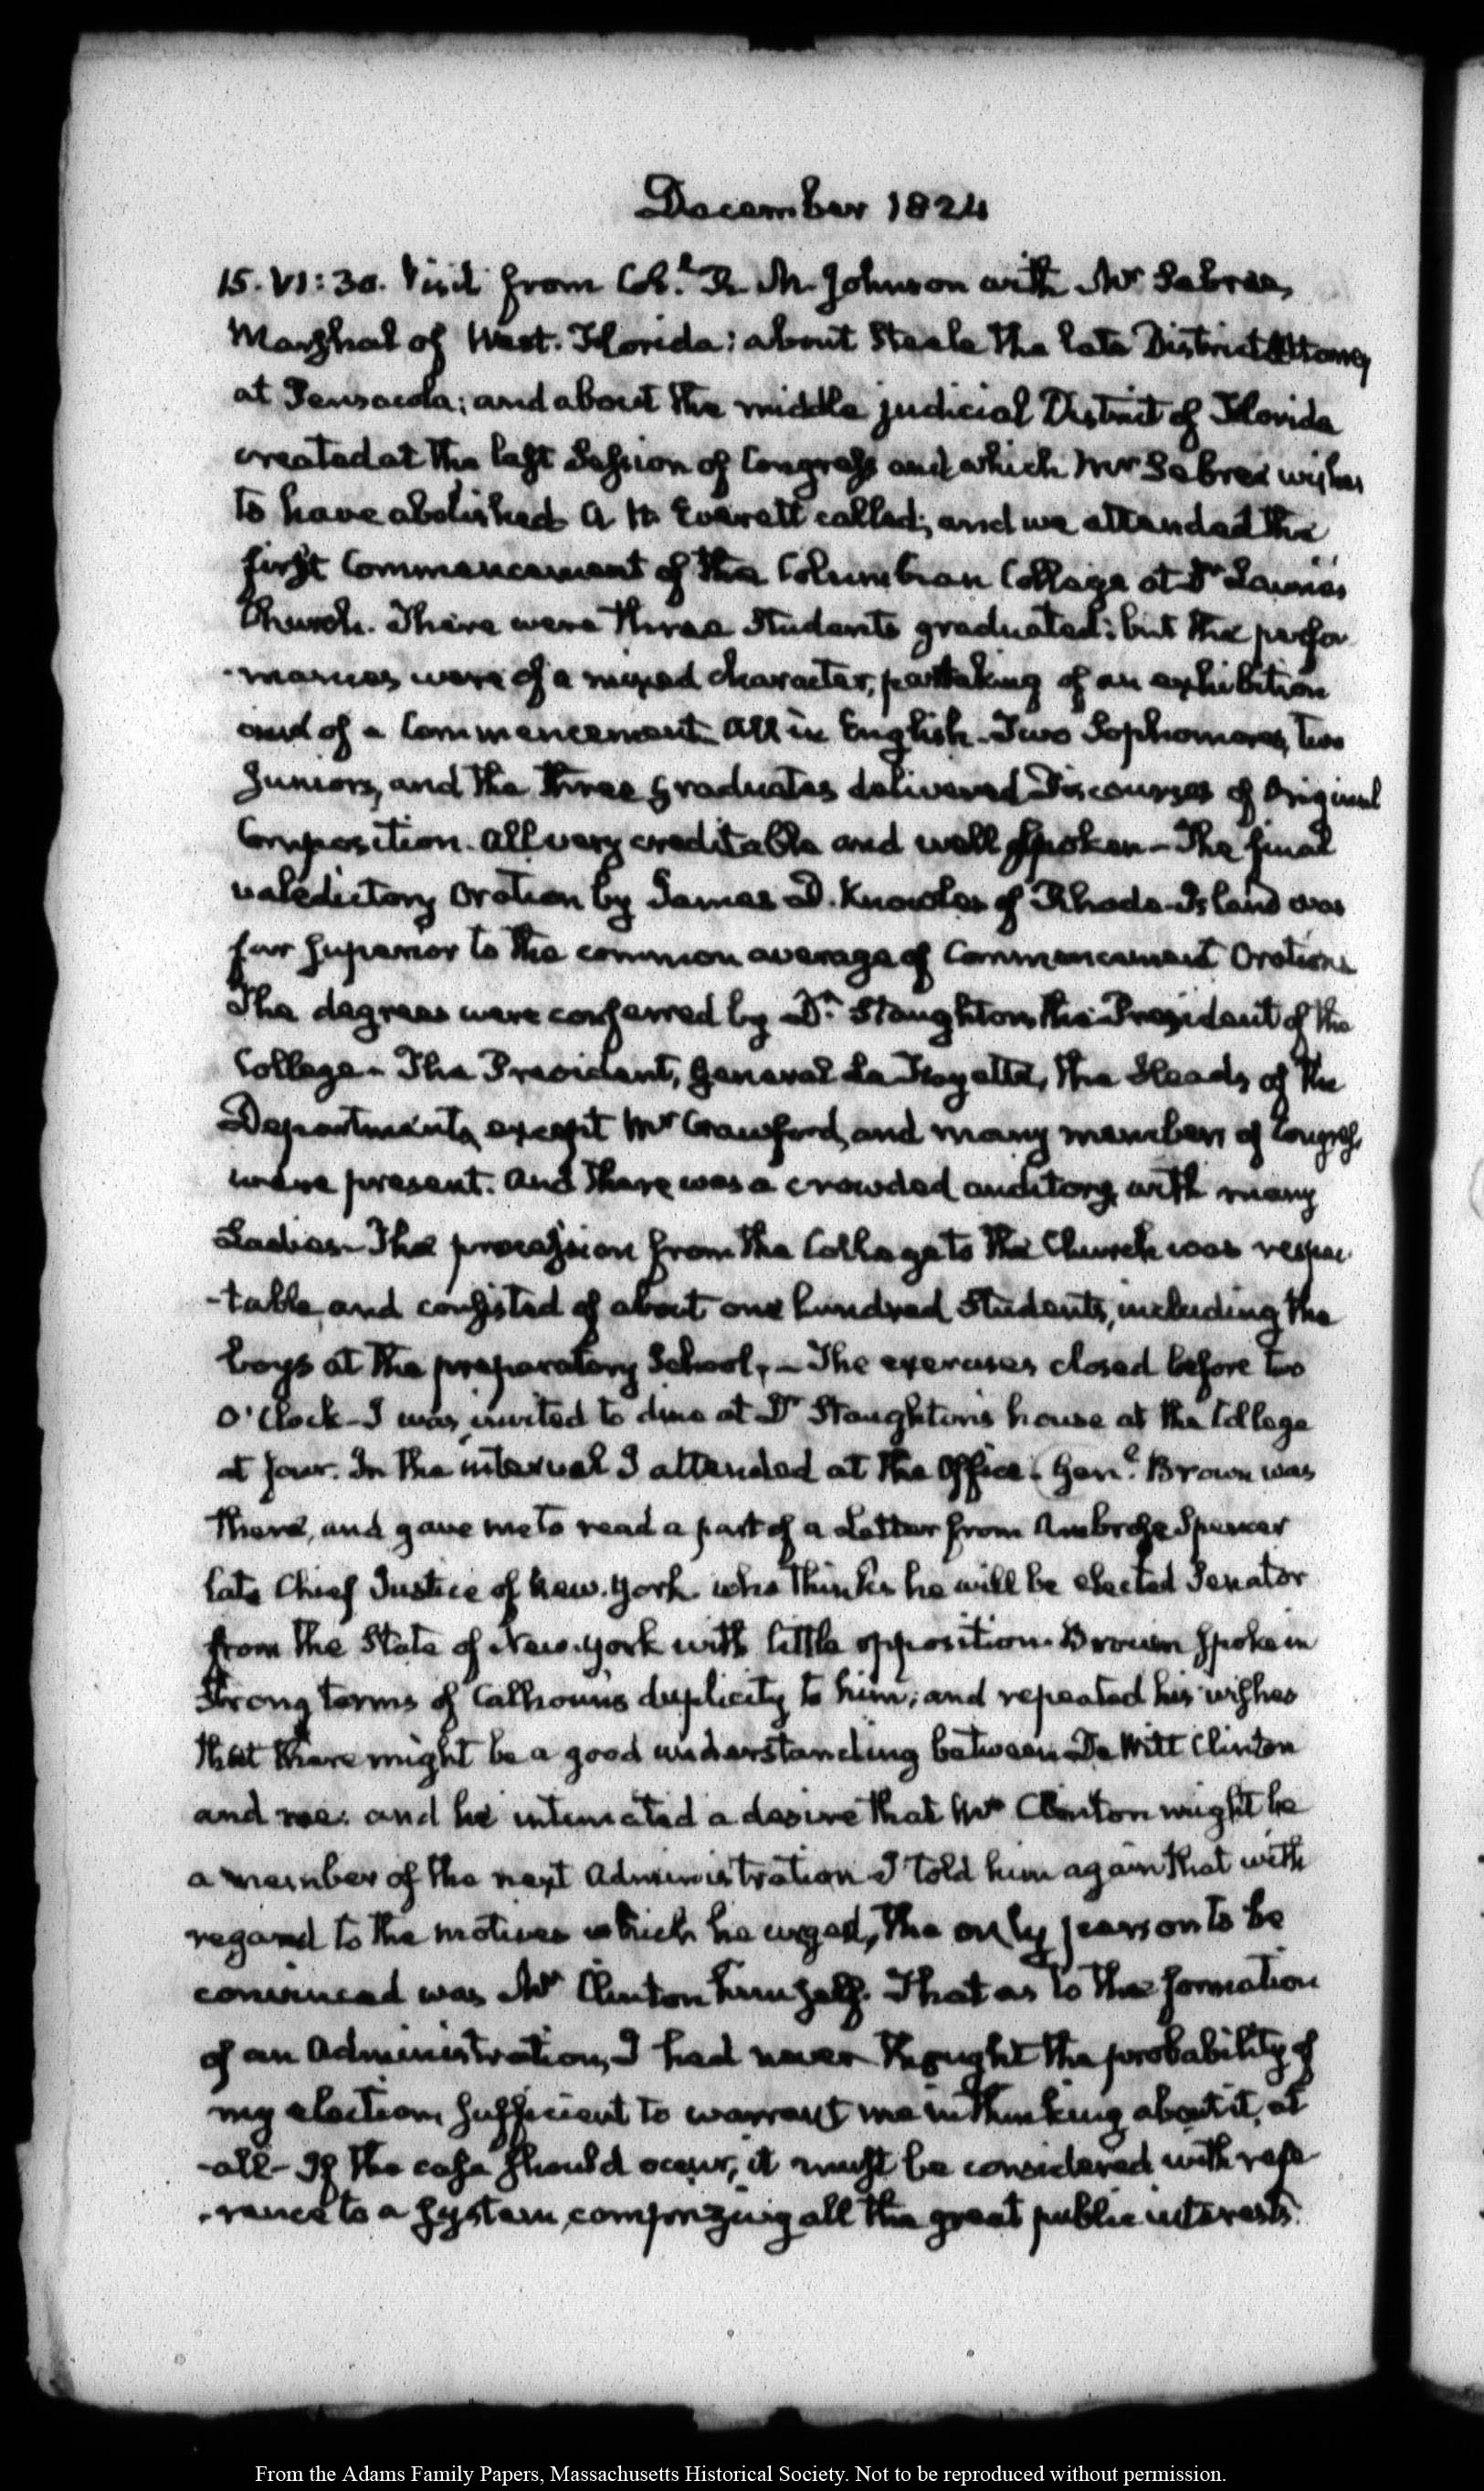 December 1824
15. VI:30. Visit from Col.l R. M. Johnson with Mr Sebree,
Marshal of West-Florida: about Steele the late District Attorney
at Pensacola; and about the middle judicial District of Florida
created at the last Session of Congress and which Mr Sebree wishes
to have abolished A H. Everett called; and we attended the
first Commencement of the Columbian College at Dr Laurie's
Church. There were three Students graduated: but the perfor
-mances were of a mixed character, partaking of an exhibition
and of a Commencement. All in English. Two Sophomores, two
Juniors, and the three graduates delivered Discourses of Original
Composition. All very creditable and well spoken – The final
valedictory Oration by James D. Knowles of Rhode-Island was
far superior to the common average of Commencement Orations
The degrees were conferred by Dr. Staughton the President of the
College – The President, General La Fayette, the Heads of the
Departments, except Mr Crawford, and many members of Congress,
were present. And there was a crowded auditory, with many
Ladies – The procession from the College to the Church was respec
-table, and consisted of about one hundred Students, including the
boys at the preparatory School, – The exercises closed before two
O'Clock – I was invited to dine at Dr Staughton's house at the College
at four. In the interval I attended at the Office. Gen.l Brown was
there, and gave me to read a part of a Letter from Ambrose Spencer
late Chief Justice of New-York who thinks he will be elected Senator
from the State of New-York with little opposition. Brown spoke in
strong terms of Calhoun's duplicity to him; and repeated his wishes
that there might be a good understanding between De Witt Clinton
and me: and he intimated a desire that Mr Clinton might be
a member of the next Administration I told him again that with
regard to the motives which he urged, the only person to be
convinced was Mr Clinton himself. That as to the formation
of an Administration, I had never thought the probability of
my election sufficient to warrant me in thinking about it, at
-all – If the case should occur, it must be considered with refe
-rence to a system, comprizing all the great public interests.
From the Adams Family Papers, Massachusetts Historical Society. Not to be reproduced without permission.